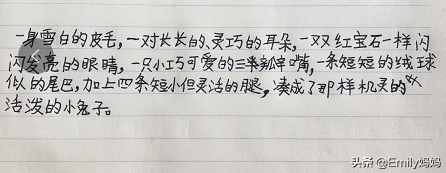 一身雪白的皮毛,一对长长的、灵巧的耳朵,一双红宝石一样闪
闪发亮的眼睛,一只小巧可爱的三瓣嘴,一条短短的绒球
似的尾巴,加上四条短小但灵活的腿,凑成了那样机灵的
活泼的小兔子。
头条 @Emily妈妈